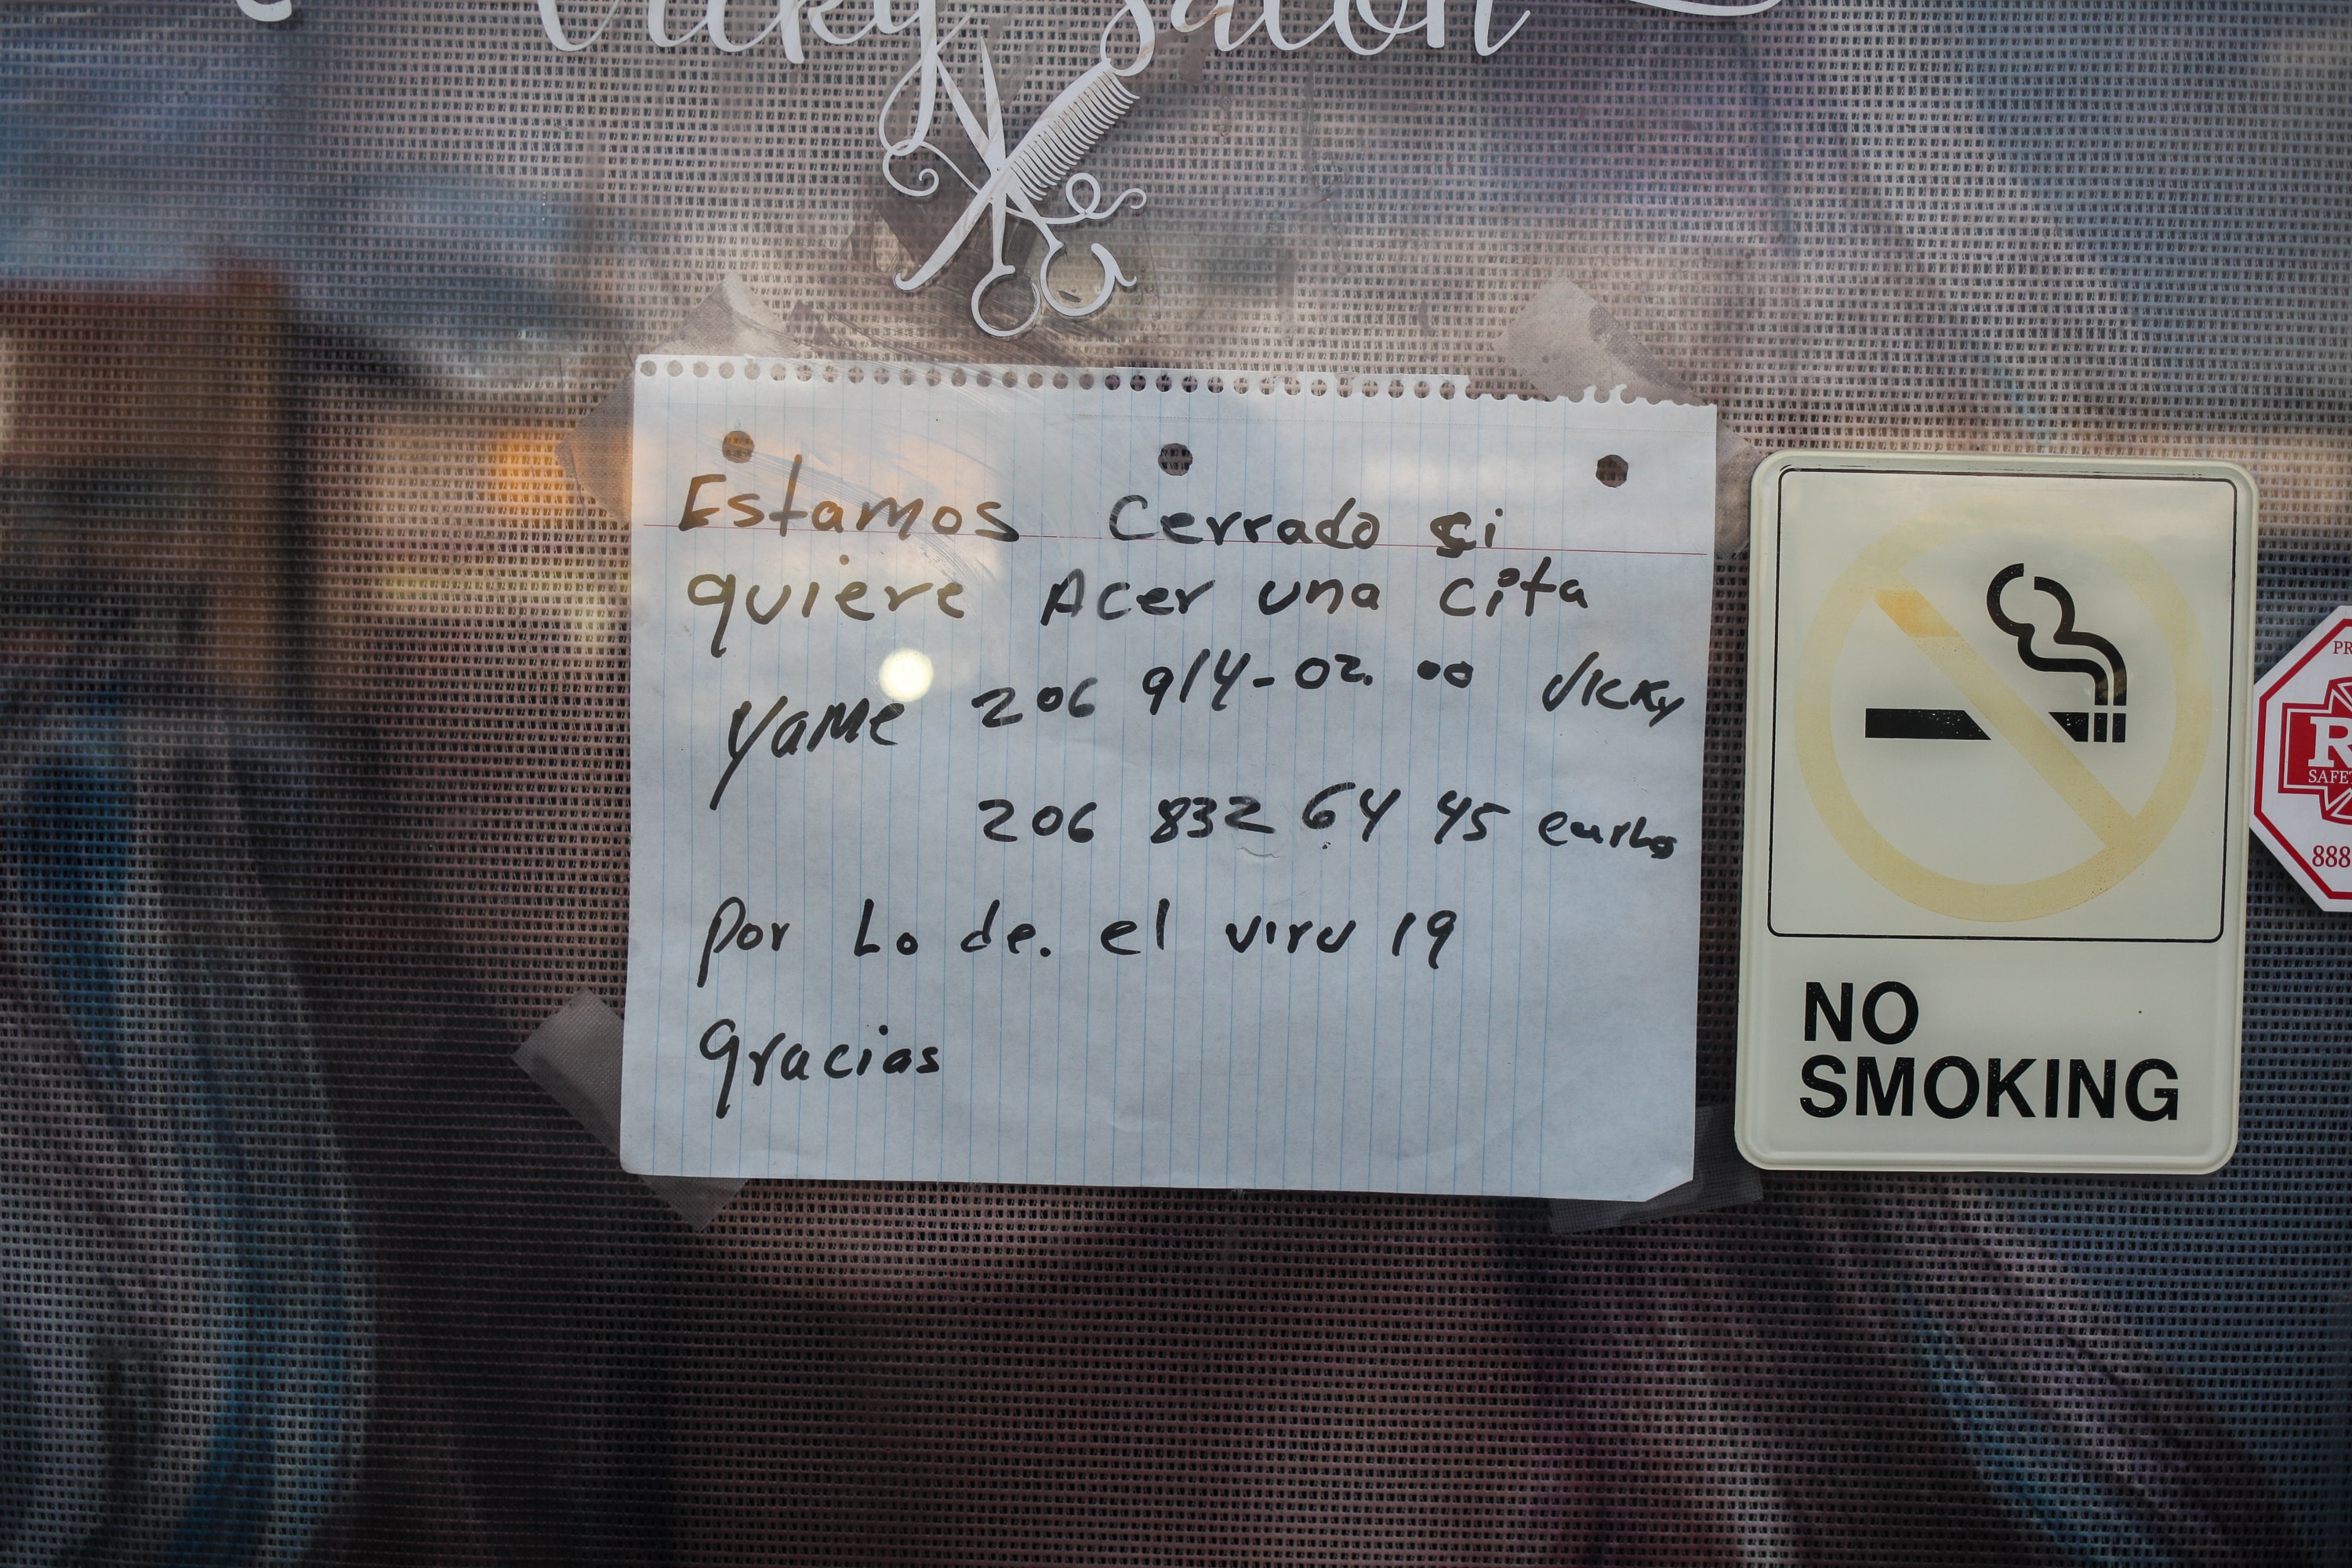 Vicky Salon
Estamos Cerrado si
quiere Acer una cita
Yame 206 914-02.00 Vicky
206 832 64 45 carlos
por Lo de. el viru 19
gracias
NO
SMOKING
PR
R
SAFE
888